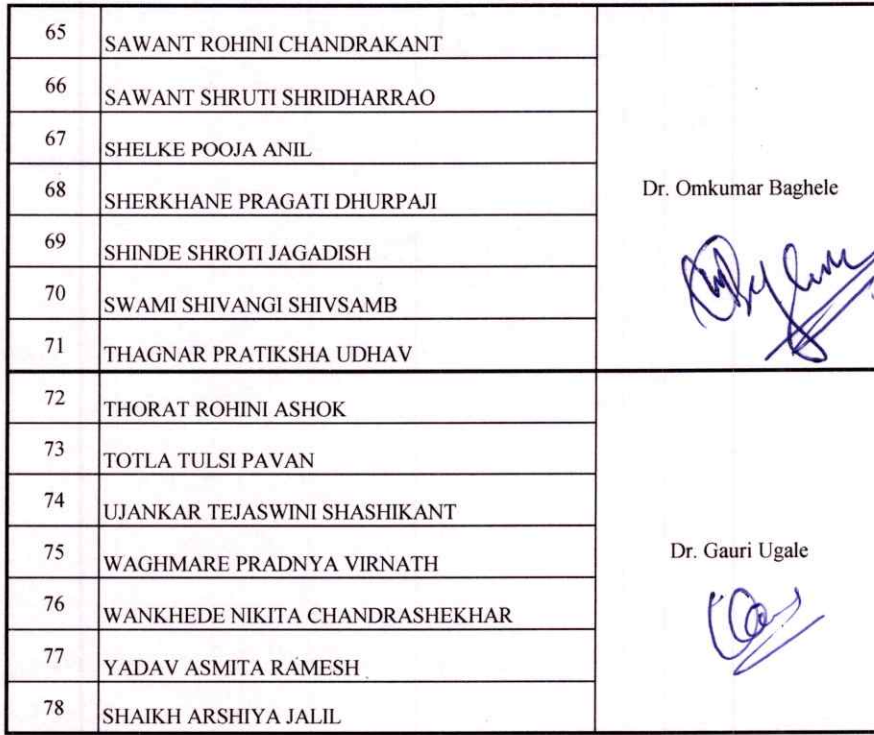 65 SAWANT ROHINI CHANDRAKANT
66 SAWANT SHRUTI SHRIDHARRAO
67 SHELKE POOJA ANIL
68 SHERKHANE PRAGATI DHURPAJI
Dr. Omkumar Baghele
69 SHINDE SHROTI JAGADISH
70 SWAMI SHIVANGI SHIVSAMB
71 THAGNAR PRATIKSHA UDHAV
72 THORAT ROHINI ASHOK
73 TOTLA TULSI PAVAN
74 UJANKAR TEJASWINI SHASHIKANT
75 WAGHMARE PRADNYA VIRNATH
Dr. Gauri Ugale
76 WANKHEDE NIKITA CHANDRASHEKHAR
77 YADAV ASMITA RAMESH
78 SHAIKH ARSHIYA JALIL